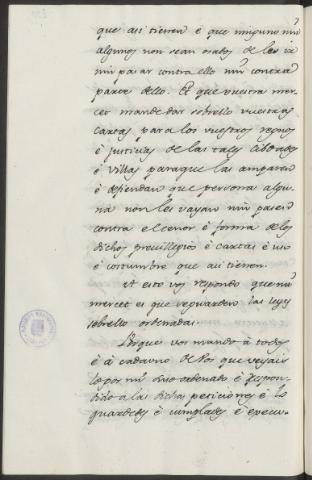 7
que asi tienen é que ninguno nin
algunos non sean osados de les ir
nin pasar contra ello nin contra
parte dello. Et que vuestra mer-
cet mande dar sobrello vuestras
cartas para los vuestros regnos
é justicias de las tales cibdades
é villas para que las amparen
é defiendan que persona algu-
na non les vayan nin pasen
contra el tenor é forma de los
dichos previllegios é cartas é uso
é costumbre que asi tienen.
A esto vos respondo que mi
mercet es que se guarden las leyes
sobrello ordenadas.
Porque vos mando á todos
é á cada uno de vos que veyais
lo por mi suso ordenado é respon-
dido á las dichas peticiones é lo
guardedes é cumplades é execu-